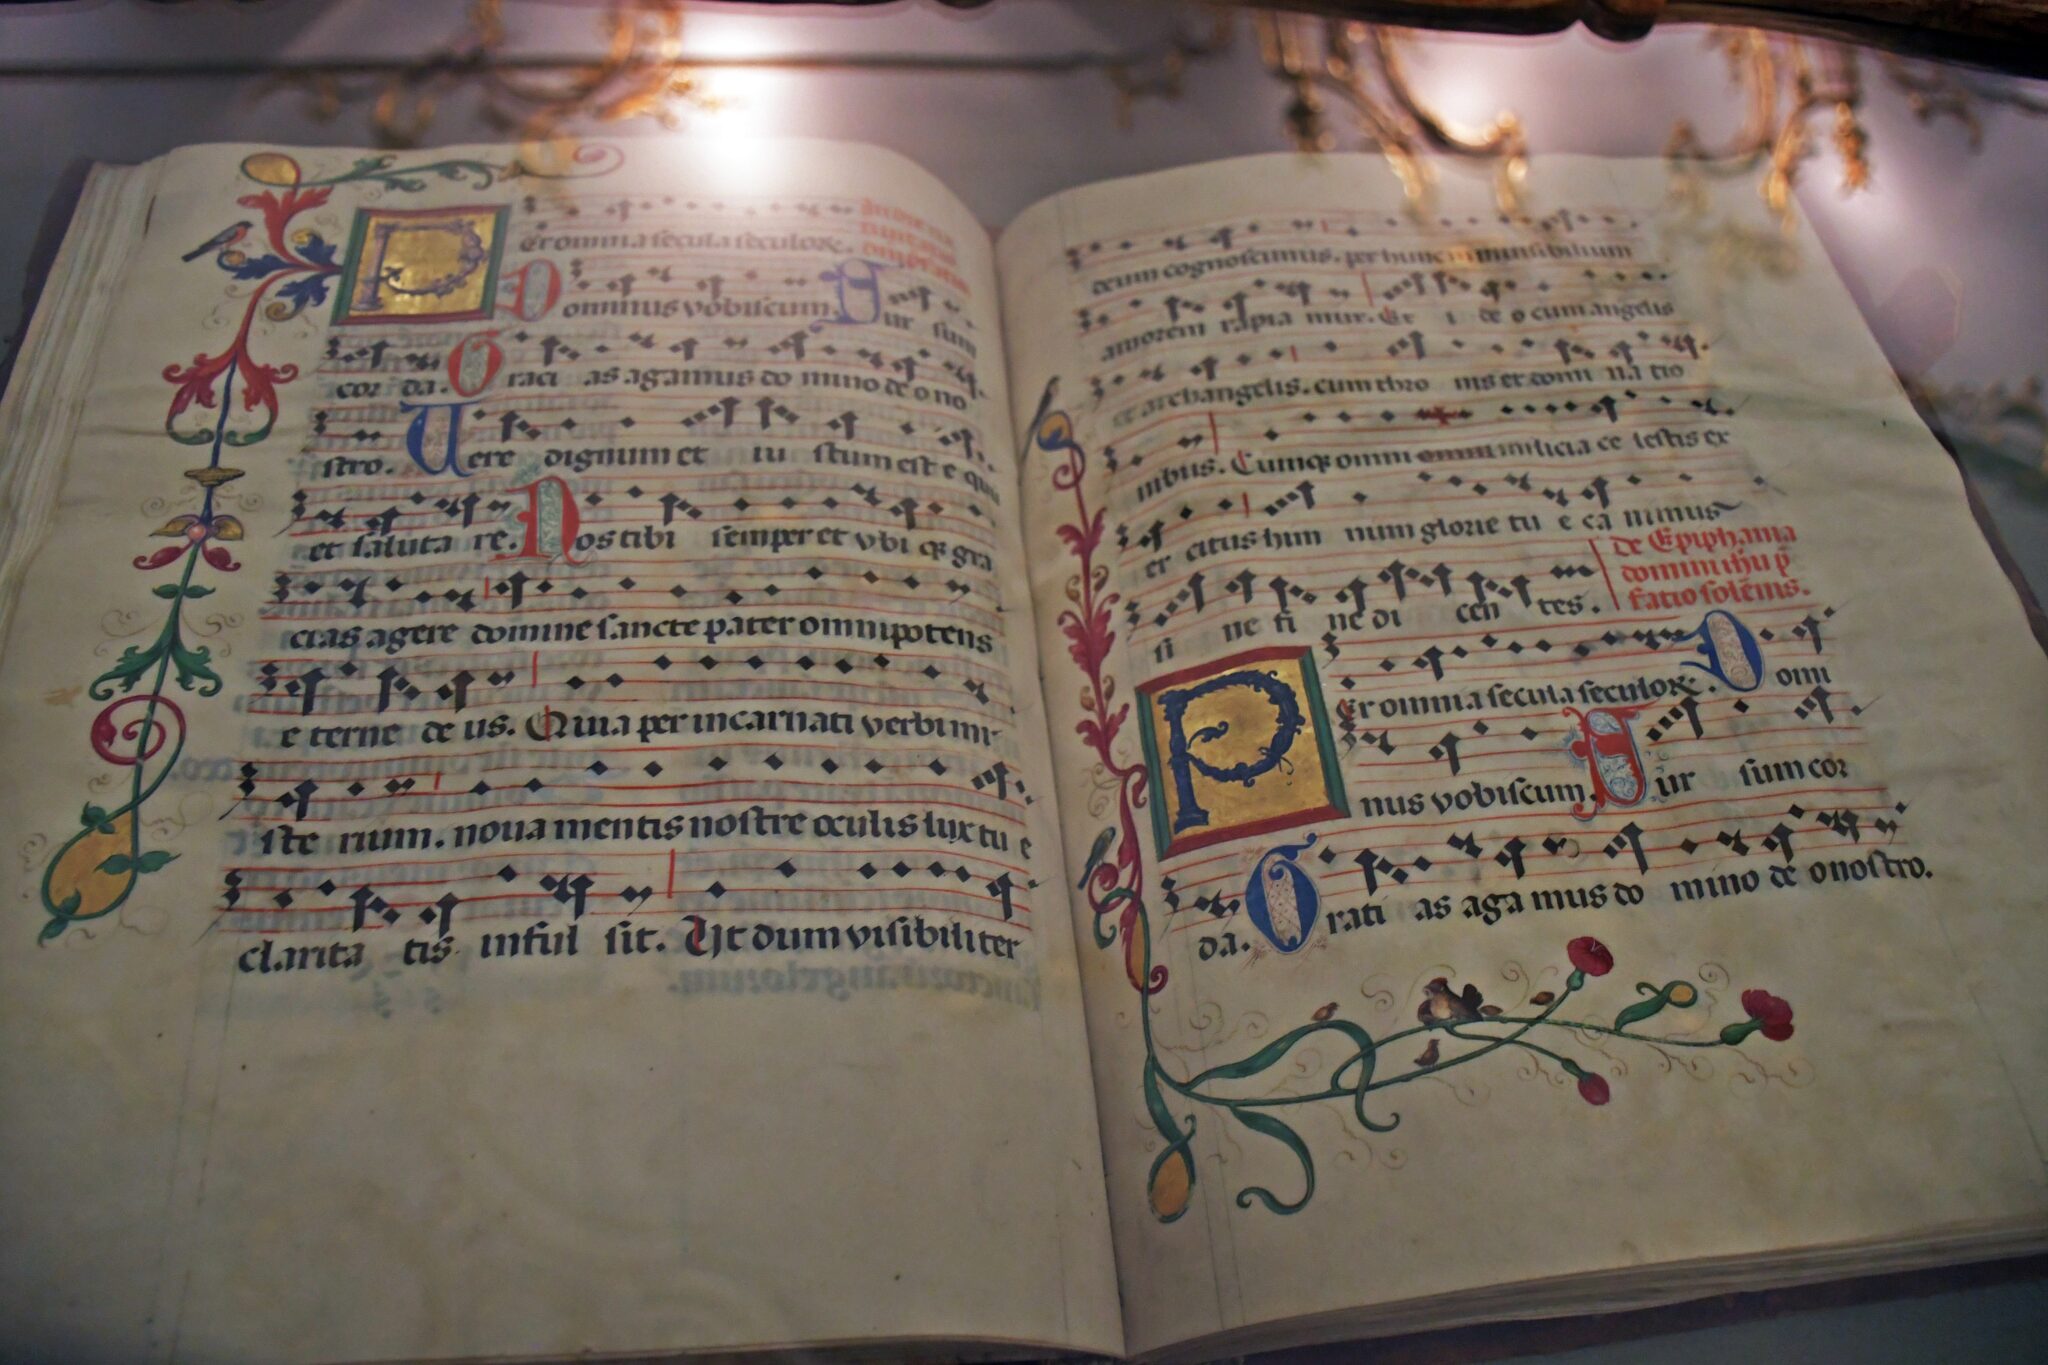 Per omnia secula seculoꝝ.
Dominus vobiscum. Sur sum
cor da. Graci as agamus do mino de o no
stro. Uere dignum et iu stum est e quū
et saluta re. Nos tibi semper et vbi qꝫ gra
cias agere domine sancte pater omnipotens
e terne de us. Quia per incarnati verbi mi
ste rium. noua mentis nostre oculis lux tu e
clarita tis inful sit. Ut dum visibiliter
deum cognoscimus. per hunc in inuisibilium
amorem rapia mur. Et i de o cum angelis
et archangelis. cum thro nis et domi na tio
nibus. Cumqꝫ omni omni milicia ce lestis ex
er citus him num glorie tu e ca nimus
si ne fi ne di cen tes.
de Epiphania
domini ihū p̄
fatio solēnis.
Per omnia secula seculoꝝ. Domi
nus vobiscum. Sur sum cor
da. Grati as aga mus do mino de o nostro.